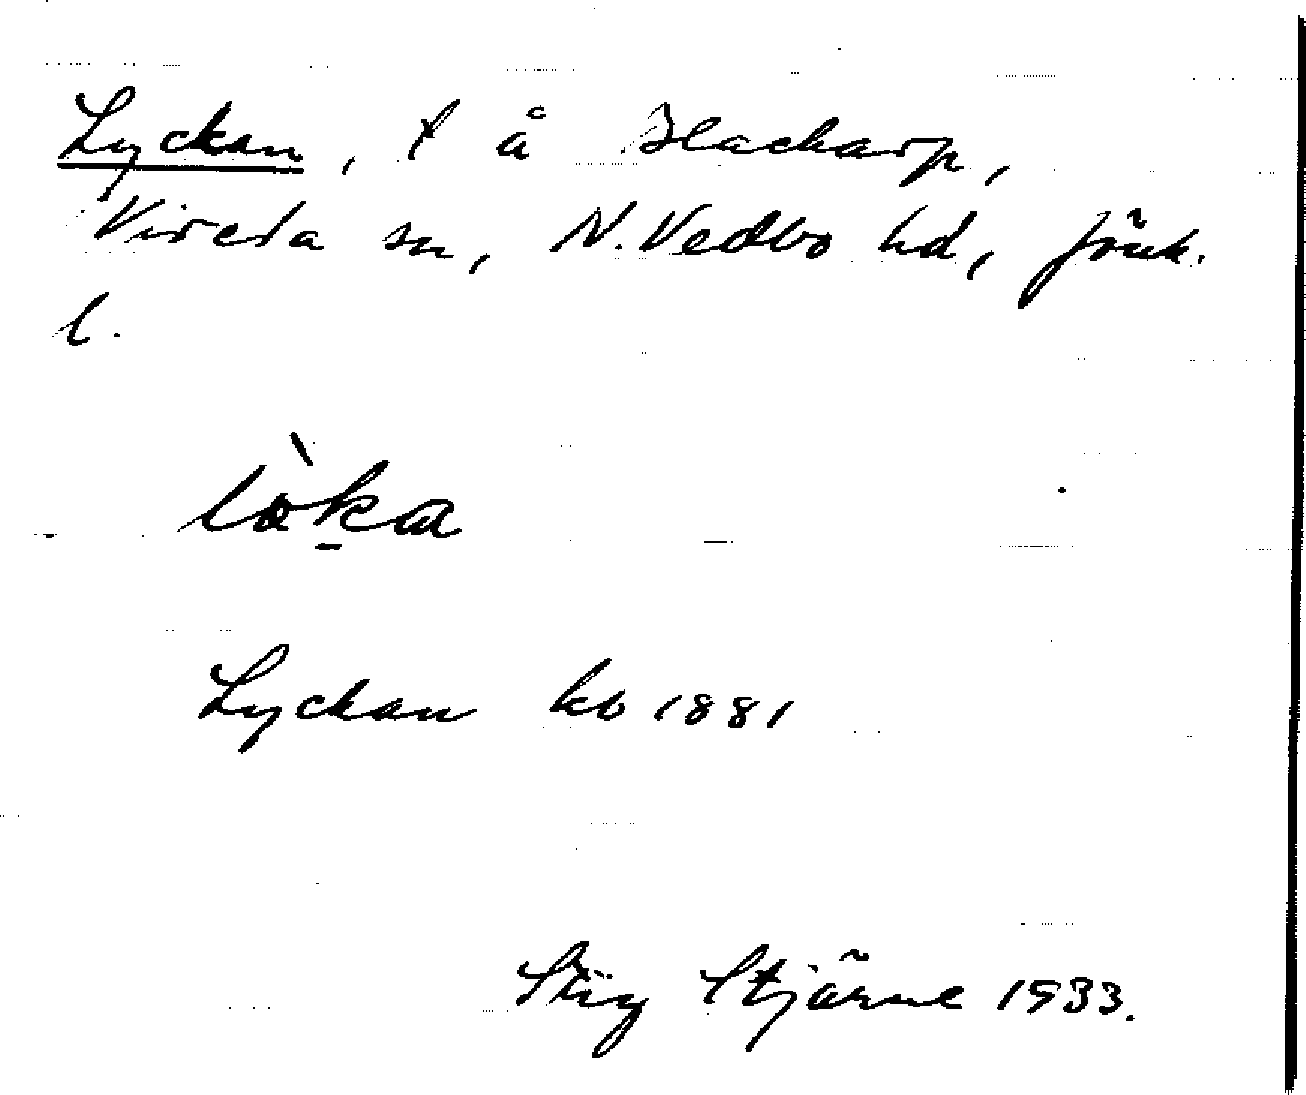 Lyckan, t å Stackarp,
Vireda sn, N. Vedbo hd, Jönk.
l.
lö̀ka
Lyckan kb 1881
Stig Stjärne 1933.